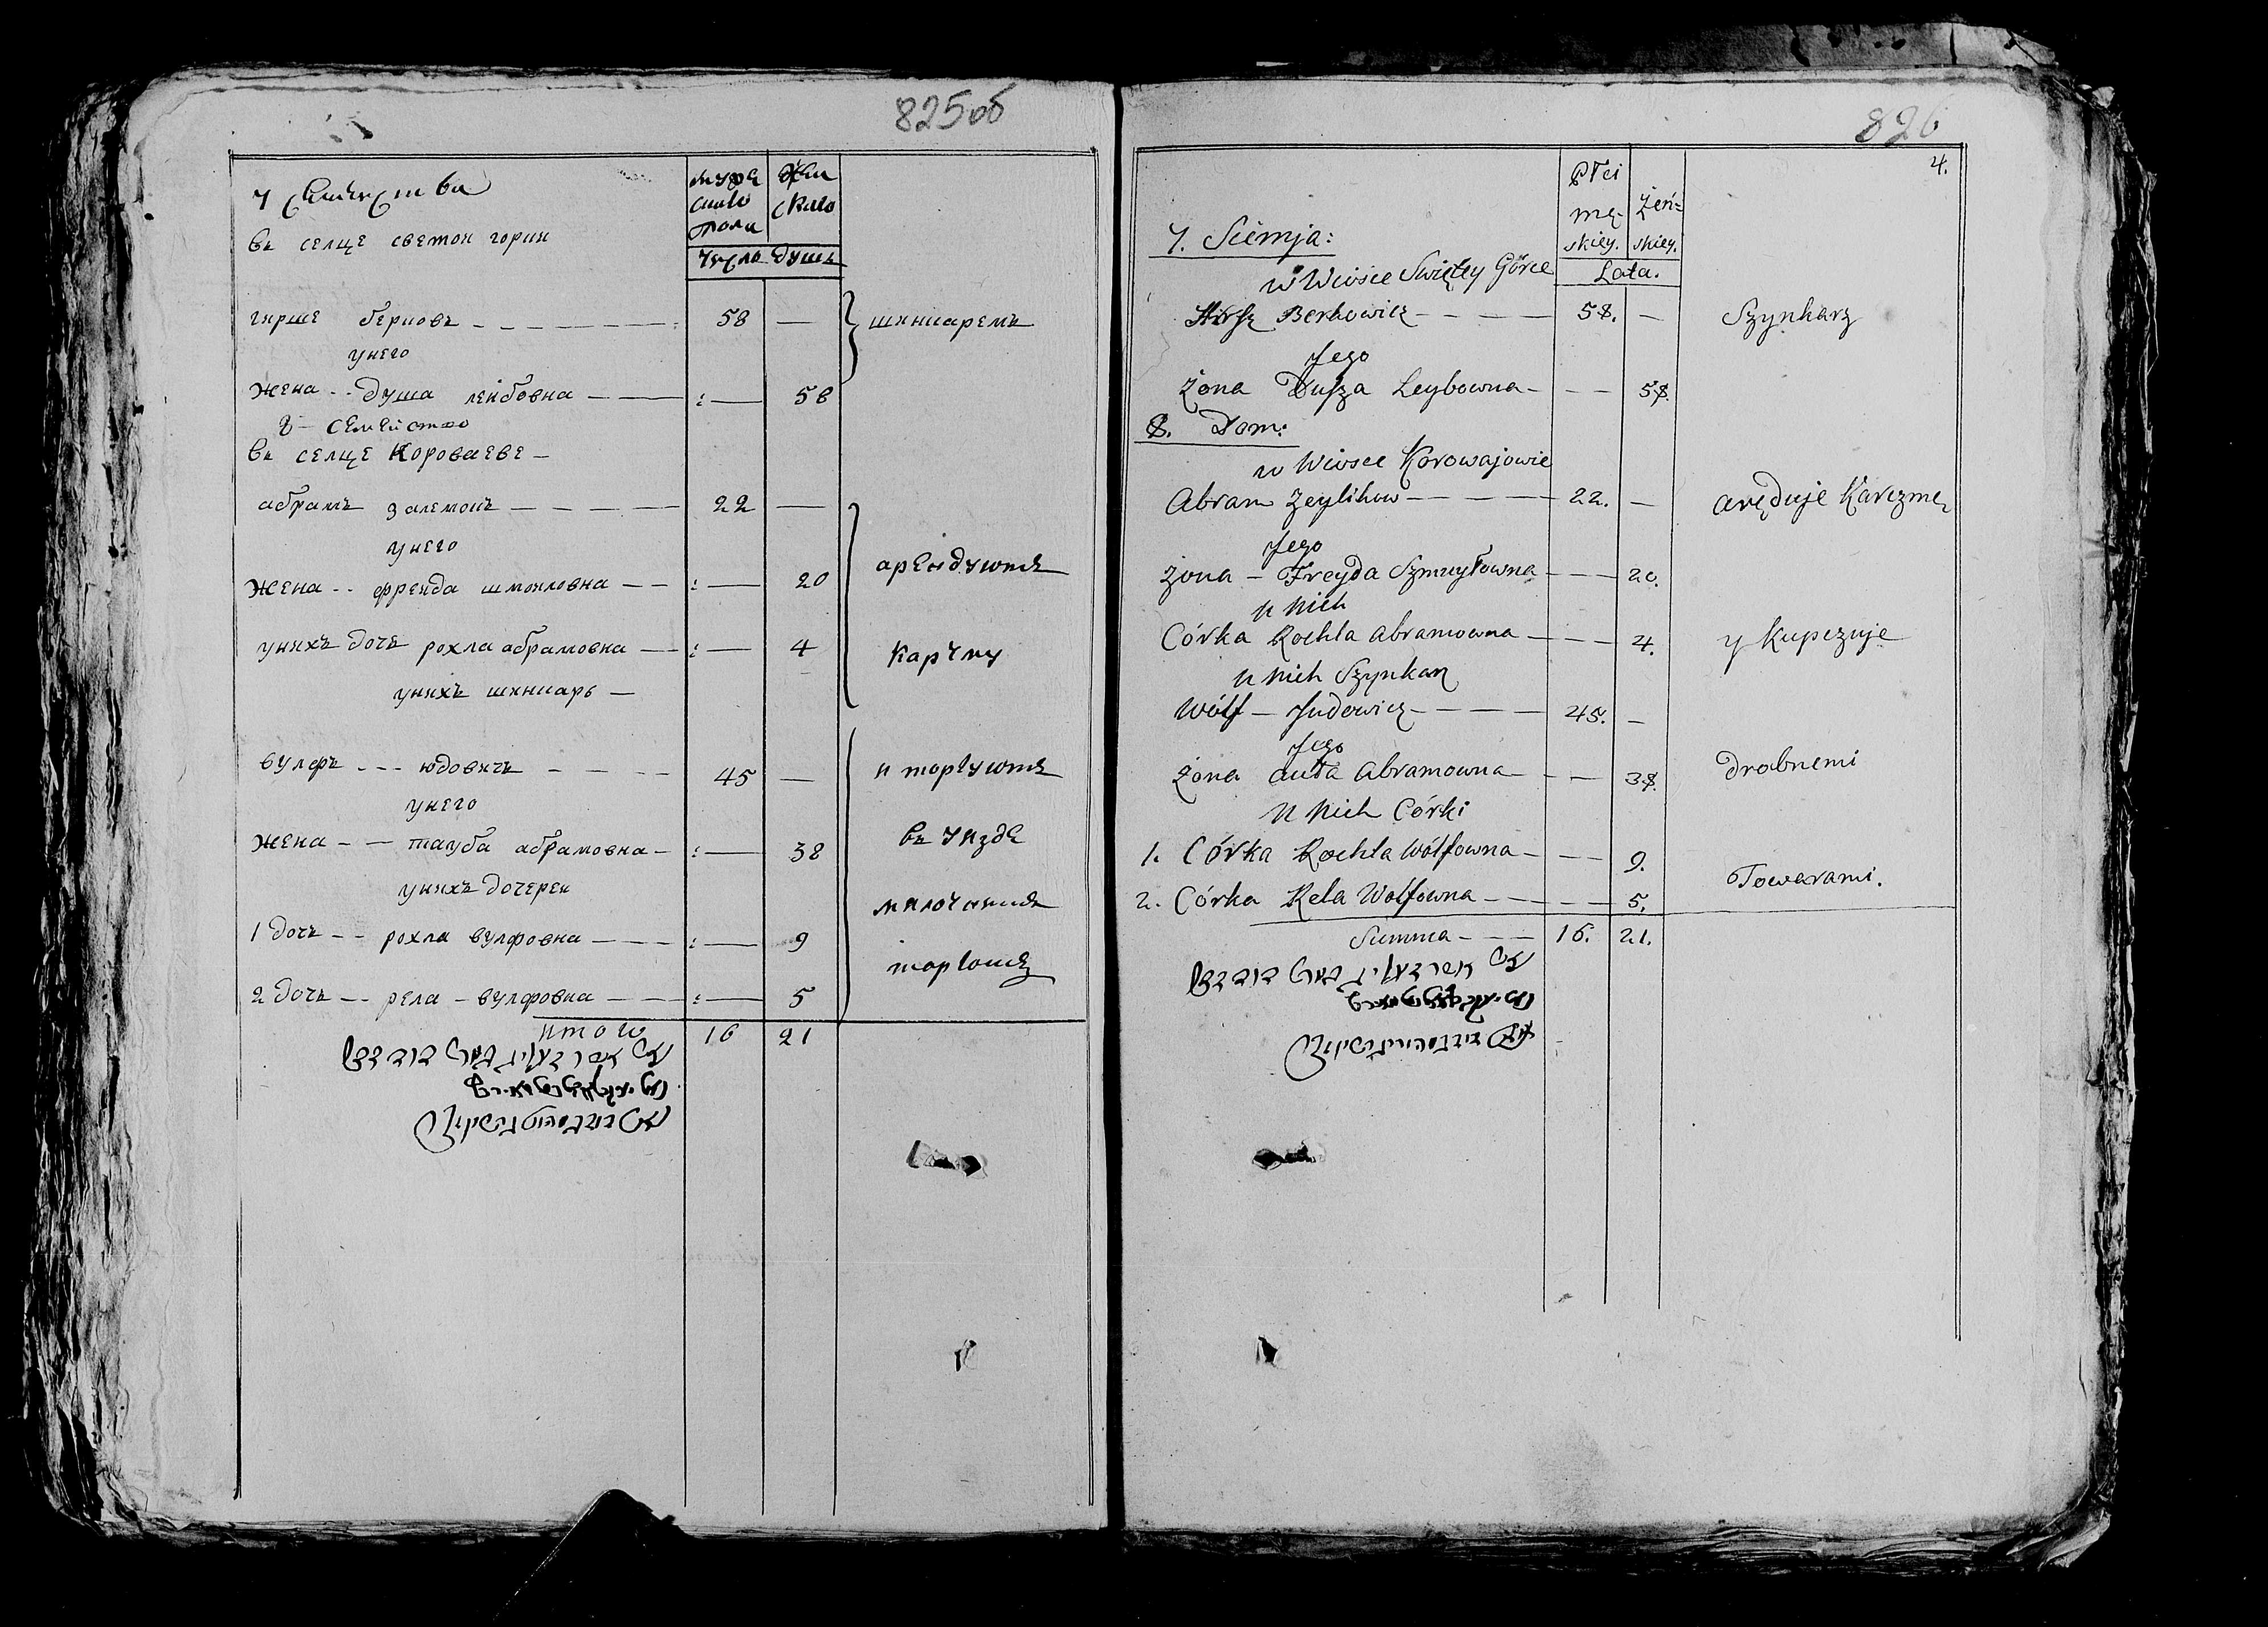 825об
7 семейства
въ селце светои горки
мужескаго пола
женскаго
число душъ
гирше берковъ 58 —
шинкаремъ
унего
жена душа лейбовна 58
8 семейство
въ селце Короваеве
абрамъ 22 —
унего
арендуетъ
жена фрейда шмойловна 20
унихъ дочь рохла абрамовна 4
карчму
унихъ шинкарь
вулфъ юдовичъ 45 —
и торгуетъ
унего
жена тауба абрамовна 38
въ уезде
унихъ дочерей
мелочнимъ
1 дочь рохла вулфовна 9
торгомъ
2 дочь рела вулфовна 5
итого 16 21
826
4.
Płci
mę- skiey.
żeń- skiey.
Lata.
7. Siemja:
w Wiosce Swiętey Górce
Hirsz Berkowicz 58. —
Szynkarz
Jego
żona Dusza Leybowna — 58.
8. Dom:
w Wiosce Korowajowie
Abram Zeylikow 22. —
aręduje Karczmę
Jego
żona — Freyda Szmuyłowna — 20.
u nich
Córka Rochla Abramowna — 4.
y kupczuje
u nich Szynkarz
Wólf — Judowicz 45. —
Jego
żona Abramowna — 38.
drobnemi
u nich Córki
1. Córka Rochla Wólfowna — 9.
Towarami.
2. Córka Rela Wolfowna — 5.
Summa 16. 21.